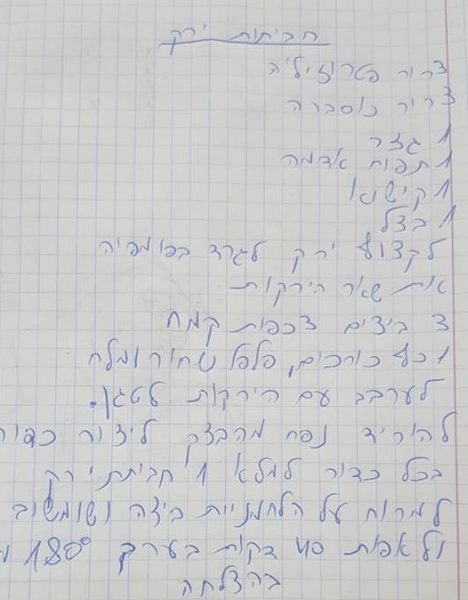 חביתות ירק
צרור פטרוזיליה
צריר כוסברה
1 גזר
1 תפוח אדמה
1 קישוא
1 בצל
לקצוץ ירק לגרד בפומפיה
את שאר הירקות
3 ביצים 3 כפות קמח
1 כף כורכום, פלפל שחור ומלח
לערבב עם הירקות לטגן.
להוריד נפח מהבצק ליצור כדור
בכל כדור למלא 1 חביתת ירק
למרוח על הלחמניית ביצה ושומשום
ולאפות 40 דקות בערך 180°
בהצלחה